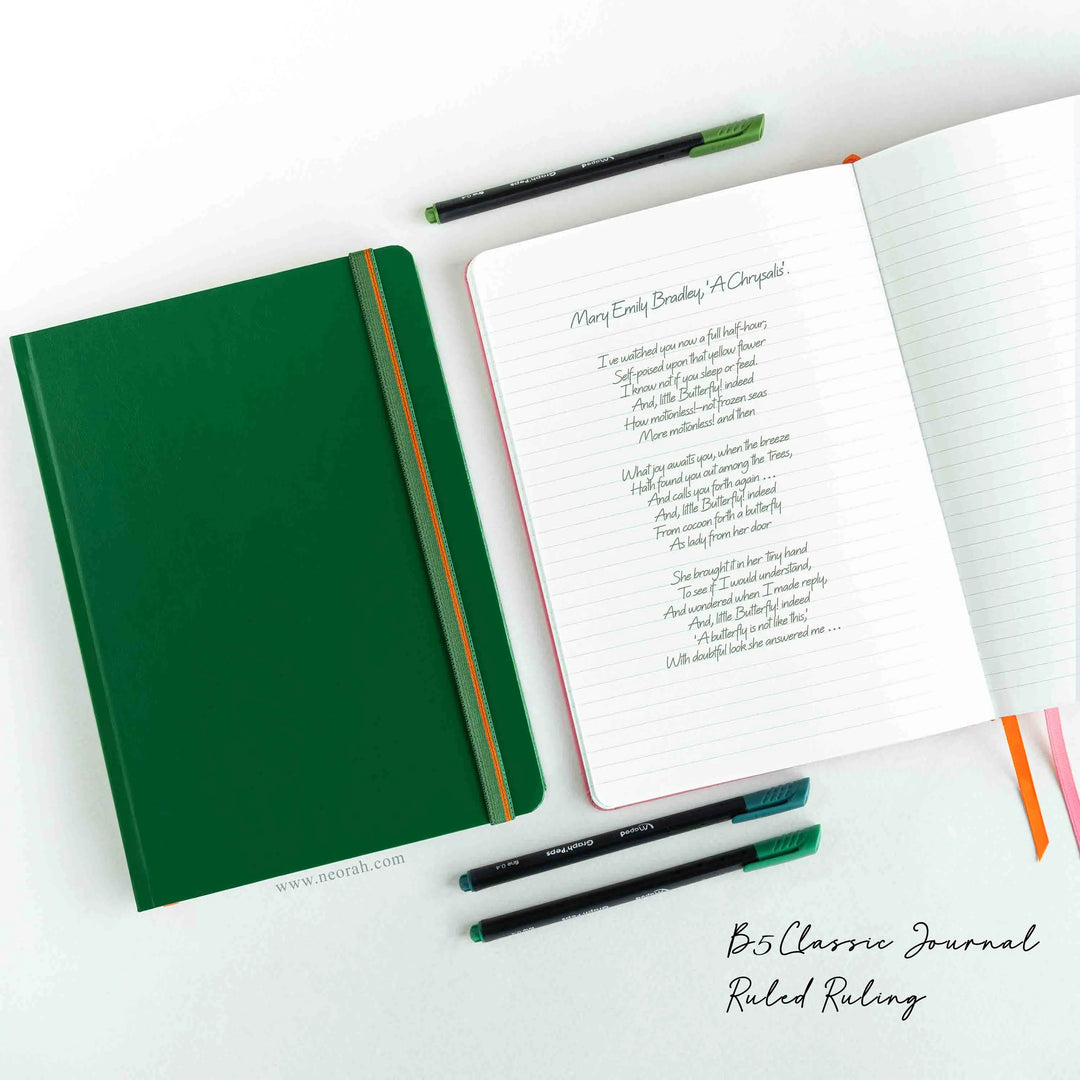 Maped Graph'Peps fine 0.4
Mary Emily Bradley, 'A Chrysalis'.
I've watched you now a full half-hour;
Self-poised upon that yellow flower
I know not if you sleep or feed.
And, little Butterfly! indeed
How motionless!-not frozen seas
More motionless! and then
What joy awaits you, when the breeze
Hath found you out among the trees,
And calls you forth again ...
And, little Butterfly! indeed
From cocoon forth a butterfly
As lady from her door
She brought it in her tiny hand
To see if I would understand,
And wondered when I made reply,
And, little Butterfly! indeed
'A butterfly is not like this,'
With doubtful look she answered me ...
www.neorah.com
fine 0.4 Graph'Peps Maped
B5 Classic Journal
Ruled Ruling